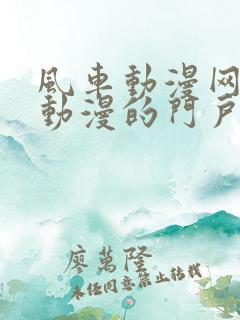 風車動漫网
動漫的門戶
廖萬隆
未任同意禁止转載